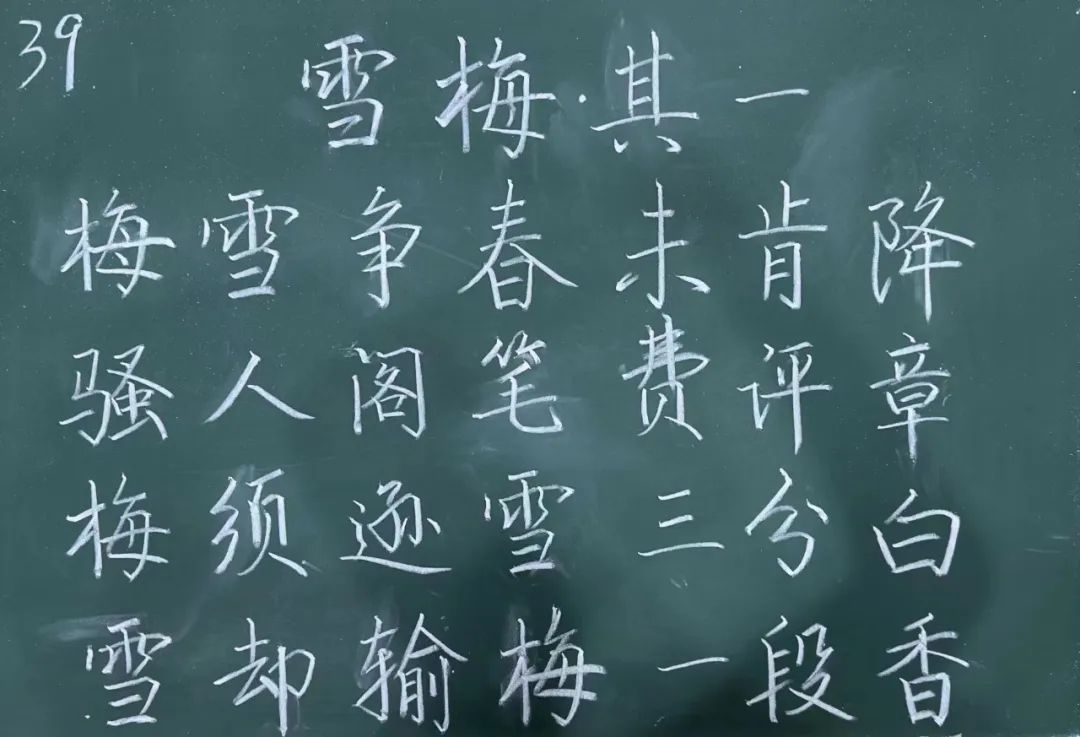 39
雪梅·其一
梅雪争春未肯降
骚人阁笔费评章
梅须逊雪三分白
雪却输梅一段香